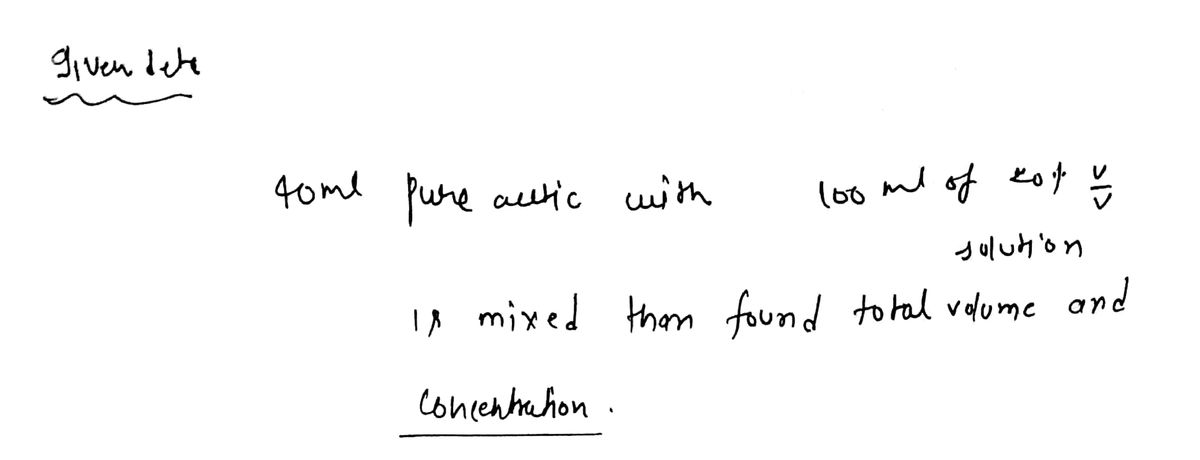 Given data
40ml pure acetic with 100 ml of 20% v/v
solution
is mixed than found total volume and
concentration.